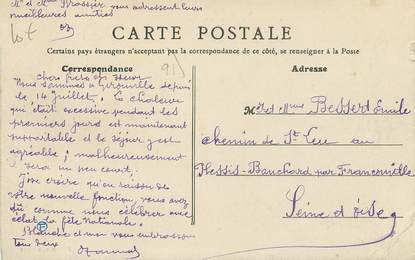 Mr et Mme Brossier vous adressent leurs
meilleures amitiés
lot
CARTE POSTALE
Certains pays étrangers n'acceptant pas la correspondance de ce côté, se renseigner à la Poste
Correspondance
Adresse
95
Cher frère et sœur
Nous sommes à Girouville depuis
le 14 Juillet. La chaleur
qui était excessive pendant les
premiers jours est maintenant
supportable et le séjour est
agréable ; malheureusement
il sera un peu court.
J'ose croire qu'en raison de
votre nouvelle fonction, vous avez
dû comme nous célébrer avec
éclat la fête Nationale.
Blanche et moi vous embrassons
tous deux
P
Mr et Mme Bessert Emile
chemin de St Leu au
Plessis-Bouchard par Franconville
Seine et Oise